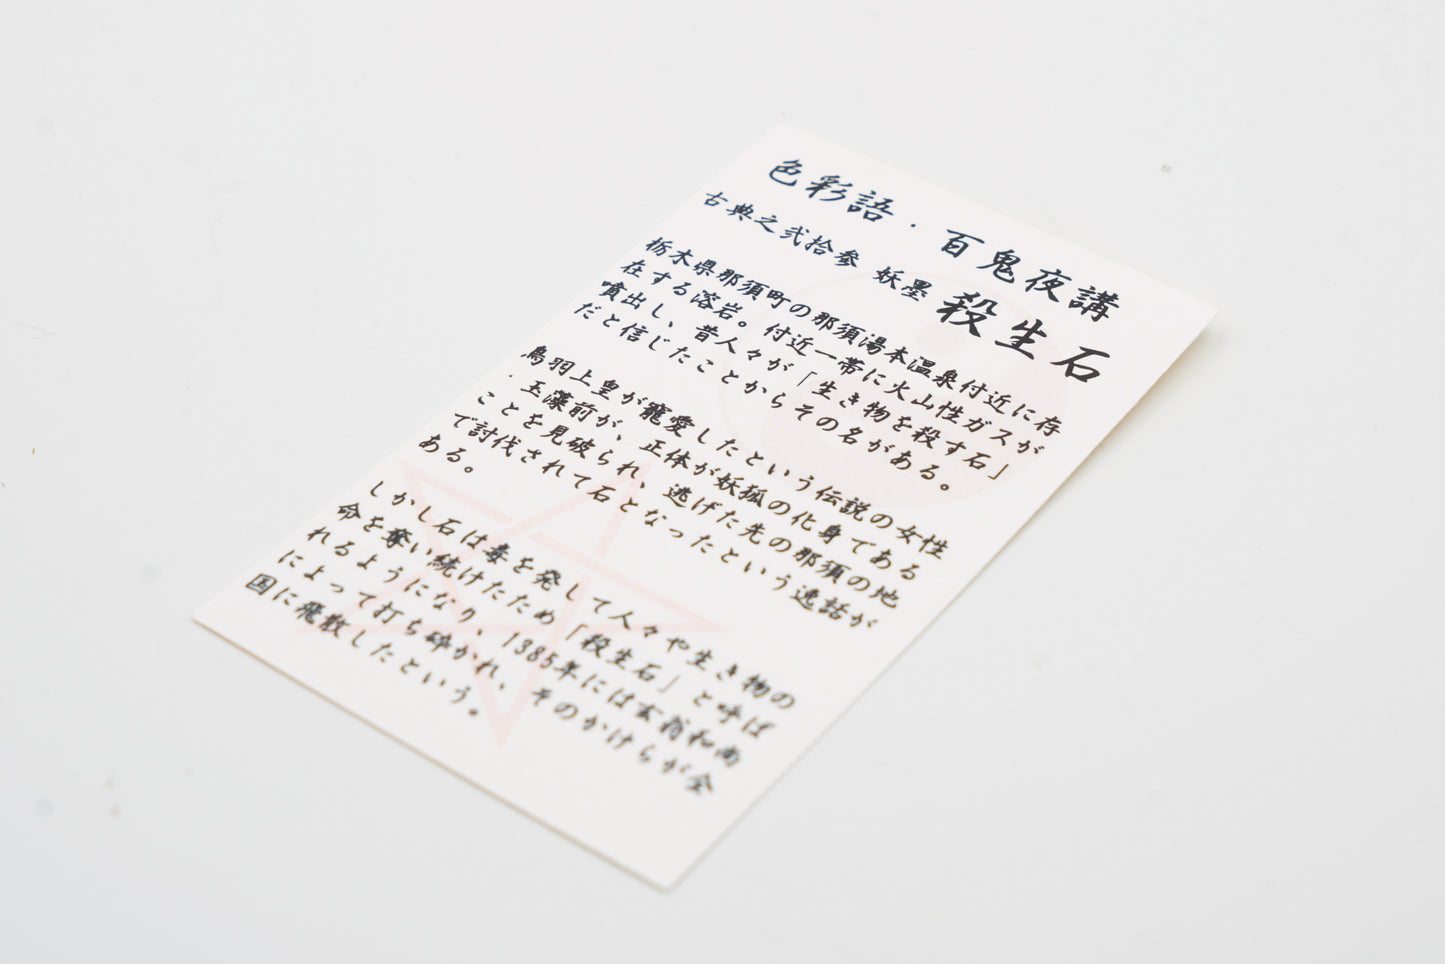 色彩語・百鬼夜講
古典之弐拾参 妖墨 殺生石
栃木県那須町の那須湯本温泉付近に存
在する溶岩。付近一帯に火山性ガスが
噴出し、昔人々が「生き物を殺す石」
だと信じたことからその名がある。
鳥羽上皇が寵愛したという伝説の女性
・玉藻前が、正体が妖狐の化身である
ことを見破られ、逃げた先の那須の地
で討伐されて石となったという逸話が
ある。
しかし石は毒を発して人々や生き物の
命を奪い続けたため「殺生石」と呼ば
れるようになり、1385年には玄翁和尚
によって打ち砕かれ、そのかけらが全
国に飛散したという。